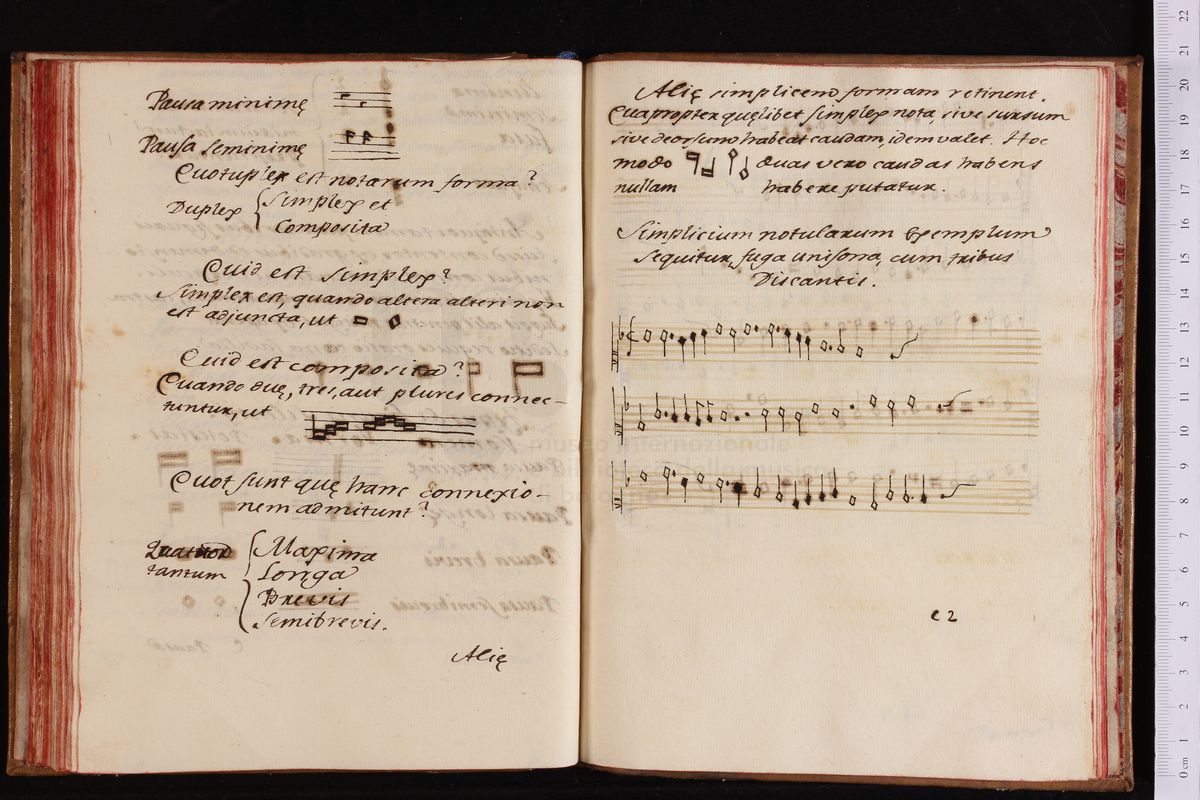 Pausa minimę
Pausa seminimę
Quotuplex est notarum forma?
Duplex { Simplex et
Composita
Quid est simplex?
Simplex est, quando altera alteri non
est adjuncta, ut
Quid est composita?
Quando duę, tres, aut plures connec-
tuntur, ut
Quot sunt quę hanc connexio-
nem admitunt?
Quatuor
tantum { Maxima
Longa
Brevis
Semibrevis.
Alię
Alię simplicem formam retinent.
Quapropter quęlibet simplex nota, sive sursum
sive deorsum habeat caudam, idem valet. Hoc
modo duas vero caudas habens
nullam habere putatur.
Simplicium notularum Exemplum
sequitur, fuga unisona, cum tribus
Discantis.
museo internazionale
e biblioteca della musica
di bologna
c 2
0 cm 1 2 3 4 5 6 7 8 9 10 11 12 13 14 15 16 17 18 19 20 21 22